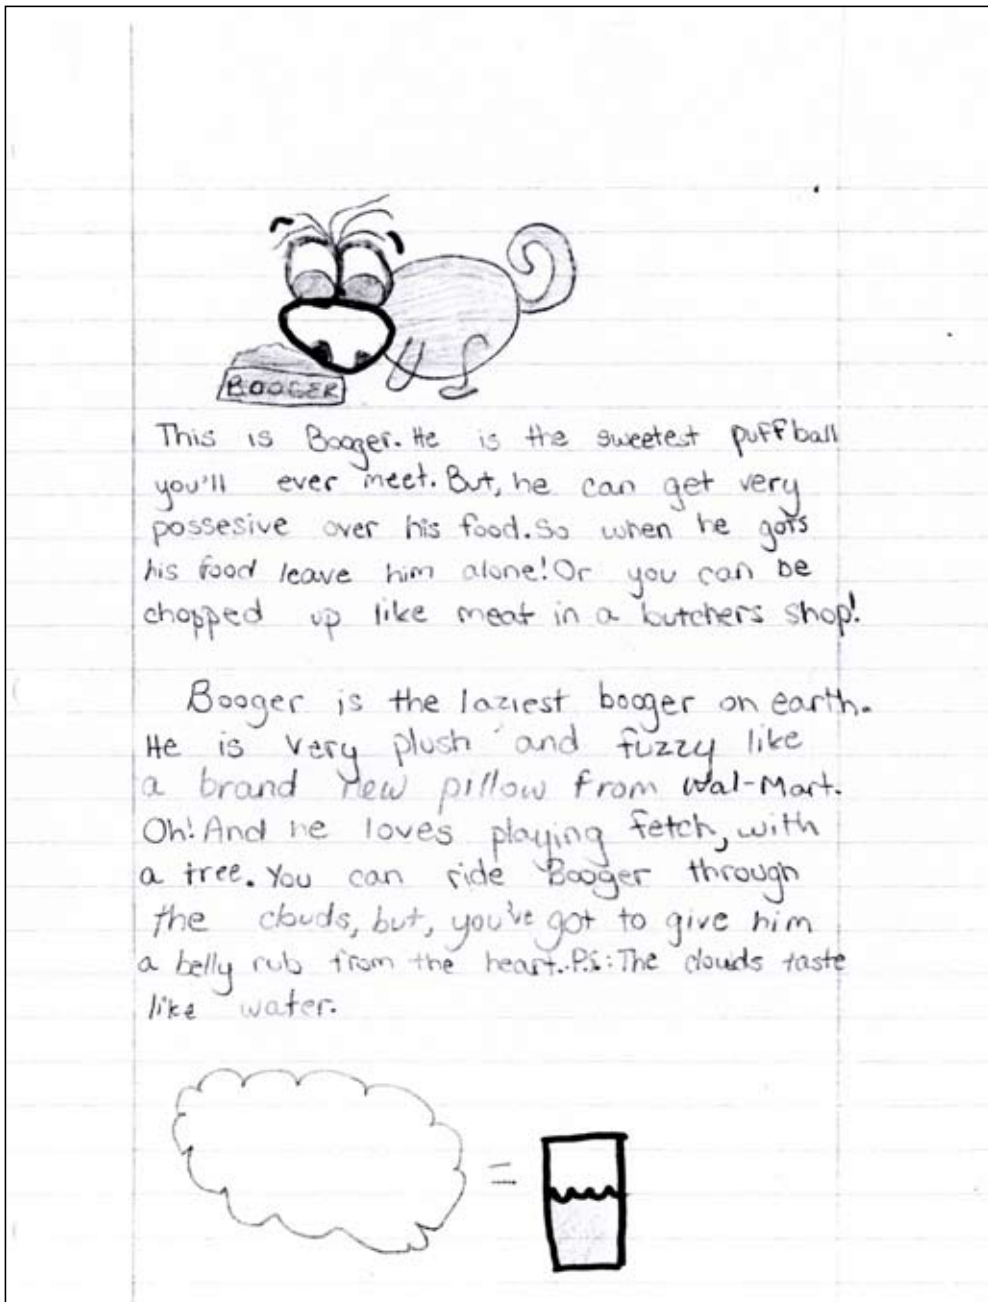 BOOGER
This is Booger. He is the sweetest puffball
you'll ever meet. But, he can get very
possesive over his food. So when he gots
his food leave him alone! Or you can be
chopped up like meat in a butchers shop!
Booger is the laziest booger on earth.
He is very plush and fuzzy like
a brand new pillow from Wal-Mart.
Oh! And he loves playing fetch, with
a tree. You can ride Booger through
the clouds, but, you've got to give him
a belly rub from the heart. P.s: The clouds taste
like water.
=